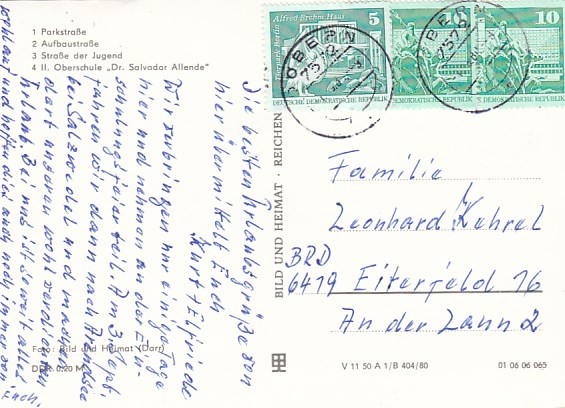 1 Parkstraße
2 Aufbaustraße
3 Straße der Jugend
4 II. Oberschule „Dr. Salvador Allende"
Die besten Urlaubsgrüße von
hier übermittelt Euch
Kurt + Elfriede
Wir verbringen nur einige Tage
hier und nehmen an der Ein-
segnungsfeier teil. Am 3. Sept.
fahren wir dann nach Arendsee
bei Salzwedel und machen
dort unseren wohlverdienten
Urlaub. Bei uns ist soweit alles
wohlauf und hoffen dies auch noch immer von
Euch.
Foto: Bild und Heimat (Darr)
DDR 0,20 M
BILD UND HEIMAT · REICHEN
Alfred Brehm Haus
Tierpark Berlin
5
DEUTSCHE DEMOKRATISCHE REPUBLIK
10
DEUTSCHE DEMOKRATISCHE REPUBLIK
10
DEUTSCHE DEMOKRATISCHE REPUBLIK
DOBERN
757
BERN
757
Familie
Leonhard Kehrel
BRD
6419 Eiterfeld 16
An der Lann 2
V 11 50 A 1/B 404/80
01 06 06 065